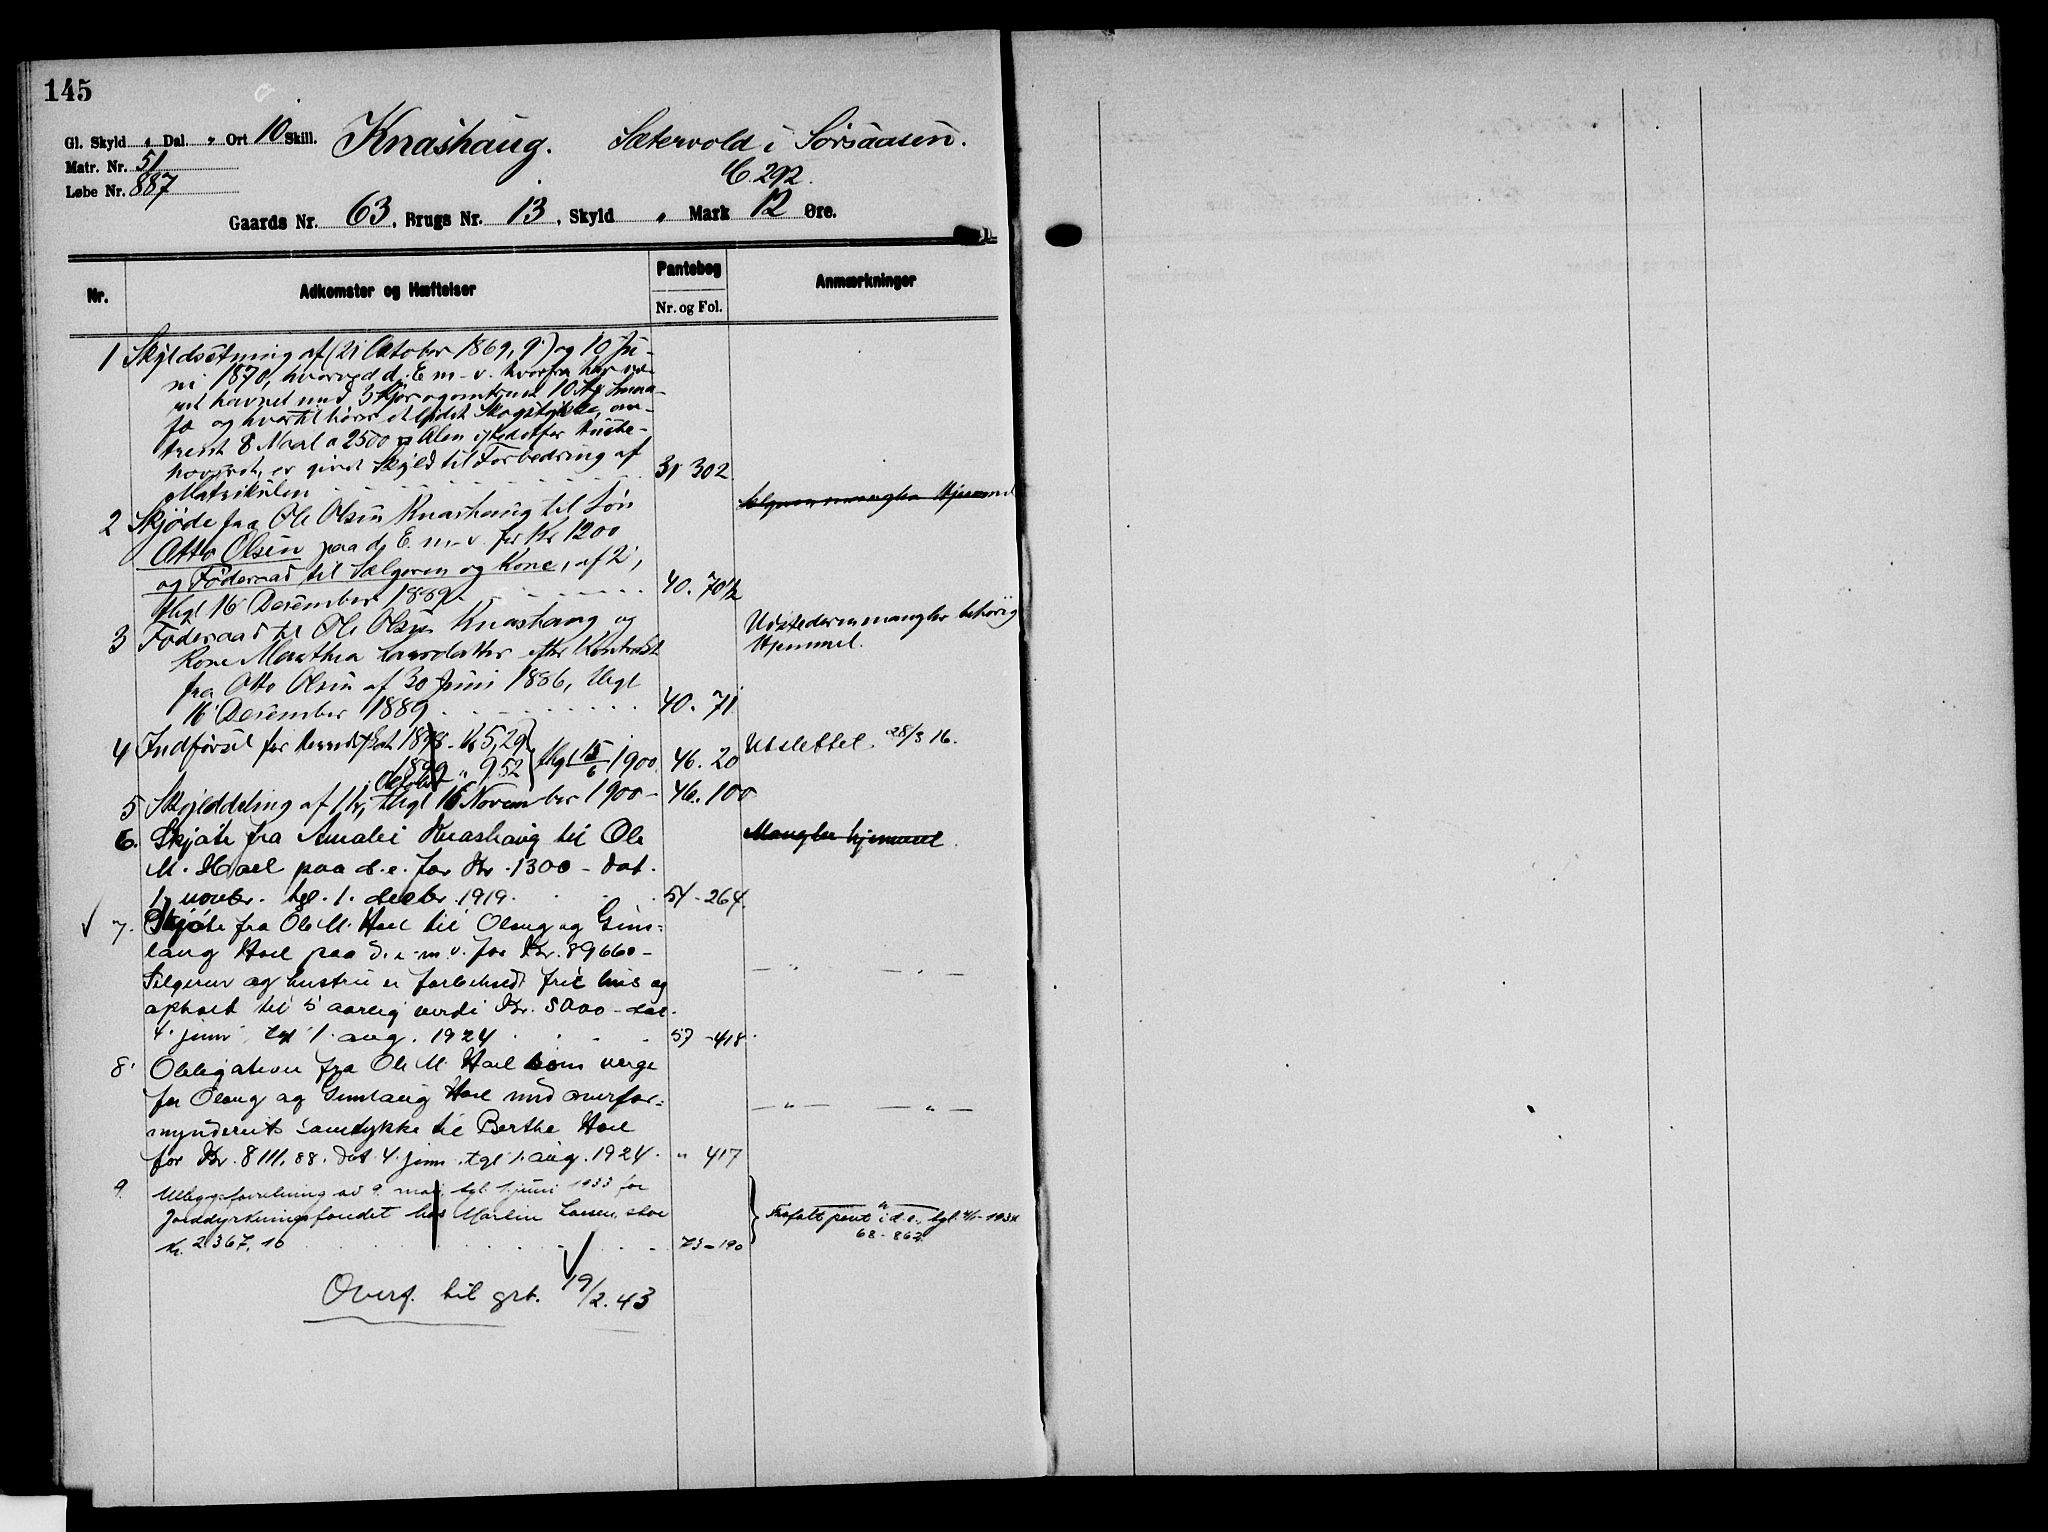 145
Gl. Skyld " Dal. " Ort 10 Skill. Knashaug. Sætervold i Sørsaasen.
Matr. Nr. 51 C. 292.
Løbe Nr. 887
Gaards Nr. 63, Brugs Nr. 13, Skyld " Mark 12 Øre.
Nr. Adkomster og Hæftelser Pantebog Anmærkninger
Nr. og Fol.
1 Skyldsætning af (21 Oktober 1869, 9') og 10 Ju-
ni 1870, hvorved d. E. m. v. hvorfra har væ-
ret havnet med 3 Kjør og omtrent 10 Smaa-
fæ og hvortil hører et lidet Skogstykke, om-
trent 8 Maal a 2500 Alen
er givet Skyld til Forbedring af
Matrikulen 31 302
2 Skjøde fra Ole Olsen Knashaug til Søn
Otto Olsen paa d. E. m. v. for Kr 1200
og Føderaad til Sælgeren og Kone, af 2,
thgl 16 December 1889. 40. 70½
3 Føderaad til Ole Olsen Knashaug og Udstederen mangler behørig
Kone Marthea Larsdatter efter Kontrakt Hjemmel.
fra Otto Olsen af 30 Juni 1886, thgl
16 December 1889 40. 71
4 Indførsel for 1898 - Kr 5,29 Utslettet 28/3 16.
1899 " 9,52 } thgl 15/6 1900. 46. 20
5 Skylddeling af 11 Oktober, thgl 16 November 1900 - 46. 100
6. Skjøte fra Amalie Knashaug til Ole Mangler hjemmel.
M. Hoel paa d. e. for Kr. 1300 - dat.
1. novbr. tgl. 1. decbr. 1919. 54 - 264.
7. Skjøte fra Ole M. Hoel til Olaug og Gun=
laug Hoel paa d. e. m. v. for Kr. 89660 -
Selgeren og hustru er forbeholdt frit hus og
ophold til 5 aarlig verdi Kr. 5000 - dat.
4. juni tgl 1. aug. 1924 57 - 418.
8. Obligation fra Ole M. Hoel som verge
for Olaug og Gunlaug Hoel med overfor=
mynderiets samtykke til Berthe Hoel
for Kr. 8111.88. dat. 4. juni. tgl 1. aug. 1924. " 417
9. Utleggsforretning av 9. mai, tgl. 1. juni 1933 for
Jorddyrkningsfondet hos Martin Larsen, stor
Kr. 2367,10 73 - 190
Frafalt pant i d. e., tgl. 4/1 - 1934
68 - 862.
Overf. til grb. 19/2. 43